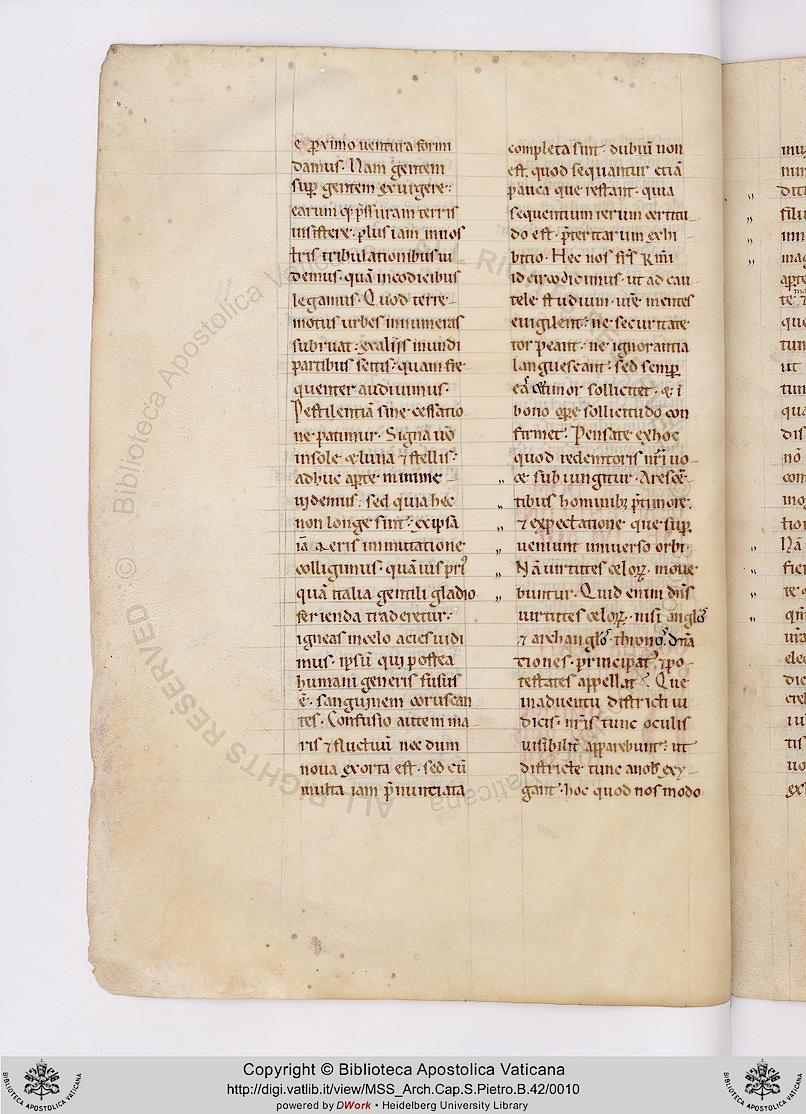 e proximo uentura formi
damus. Nam gentem
sup gentem exurgere:
earum q; pssuram terris
insistere. plus iam in nos
tris tribulationibus ui
demus. quā in codicibus
legamus. Quod terre
motus urbes innumeras
subruat: ex aliis mundi
partibus scitis: quam fre
quenter audiuimus.
Pestilentiā sine cessatio
ne patimur. Signa uo
in sole & luna & stellis:
adhuc aperte minime
uidemus: sed quia hec
non longe sint: ex ipsa
iā aeris inmutatione
colligimus. quāuis pri
quā italia gentili gladio
ferienda traderetur:
igneas in celo acies uidi
mus. ipsū qui postea
humani generis fusus
ē. sanguinem coruscan
tes. Confusio autem ma
ris & fluctuū nec dum
noua exorta est. sed cū
multa iam pnuntiata
completa sint: dubiū non
est. quod sequantur etiā
pauca que restant. quia
sequentium rerum certitu
do est. pteritarum exhi
bitio. Hec nos
idcirco dicimus. ut ad cau
tele studium. ure mentes
euigilent: ne securitate
torpeant: ne ignorantia
languescant: sed semp
eas & timor sollicitet. & i
bono opere sollicitudo con
firmet: Pensate ex hoc
quod redemtoris nri uo
ce subiungitur. Arescē
tibus hominib; p timore.
& expectatione que sup
uenient uniuerso orbi.
Nā uirtutes celoꝝ. moue
buntur. Quid enim dns
uirtutes celoꝝ. nisi anglos
& archanglos. thronos. dña
tiones. principat. & po
testates appellat? Que
in aduentu districti iu
dicis. nris tunc oculis
uisibilit apparebunt: ut
districte tunc a nob exi
gant. hoc quod nos modo
Copyright © Biblioteca Apostolica Vaticana
http://digi.vatlib.it/view/MSS_Arch.Cap.S.Pietro.B.42/0010
powered by DWork • Heidelberg University Library